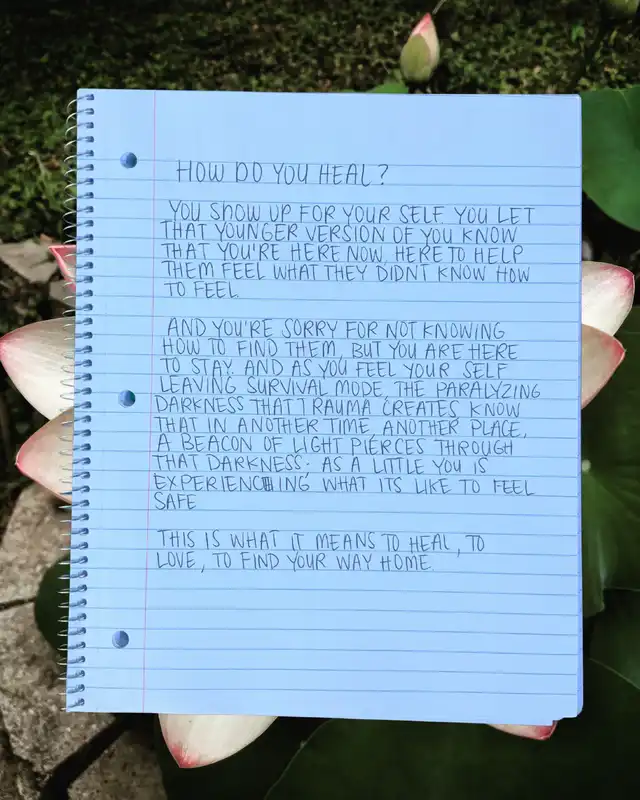 HOW DO YOU HEAL?
YOU SHOW UP FOR YOUR SELF. YOU LET
THAT YOUNGER VERSION OF YOU KNOW
THAT YOU'RE HERE NOW. HERE TO HELP
THEM FEEL WHAT THEY DIDNT KNOW HOW
TO FEEL.
AND YOU'RE SORRY FOR NOT KNOWING
HOW TO FIND THEM, BUT YOU ARE HERE
TO STAY. AND AS YOU FEEL YOUR SELF
LEAVING SURVIVAL MODE, THE PARALYZING
DARKNESS THAT TRAUMA CREATES KNOW
THAT IN ANOTHER TIME, ANOTHER PLACE,
A BEACON OF LIGHT PIERCES THROUGH
THAT DARKNESS: AS A LITTLE YOU IS
EXPERIENCING WHAT ITS LIKE TO FEEL
SAFE
THIS IS WHAT IT MEANS TO HEAL, TO
LOVE, TO FIND YOUR WAY HOME.